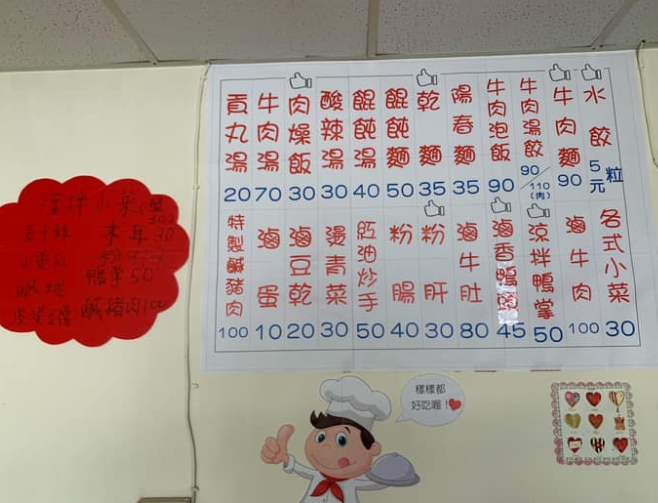 水餃 5元 粒
牛肉麵 90
牛肉湯餃 90／110(肉)
牛肉泡飯 90
陽春麵 35
乾麵 35
餛飩麵 50
餛飩湯 40
酸辣湯 30
肉燥飯 30
牛肉湯 70
貢丸湯 20
各式小菜 30
滷牛肉 100
涼拌鴨掌 50
滷香鴨 45
滷牛肚 80
粉肝 30
粉腸 40
紅油炒手 50
燙青菜 30
滷豆乾 20
滷蛋 10
特製鹹豬肉 100
涼拌小菜
木耳 30
鴨掌 50
鹹豬肉 100
樣樣都
好吃喔！